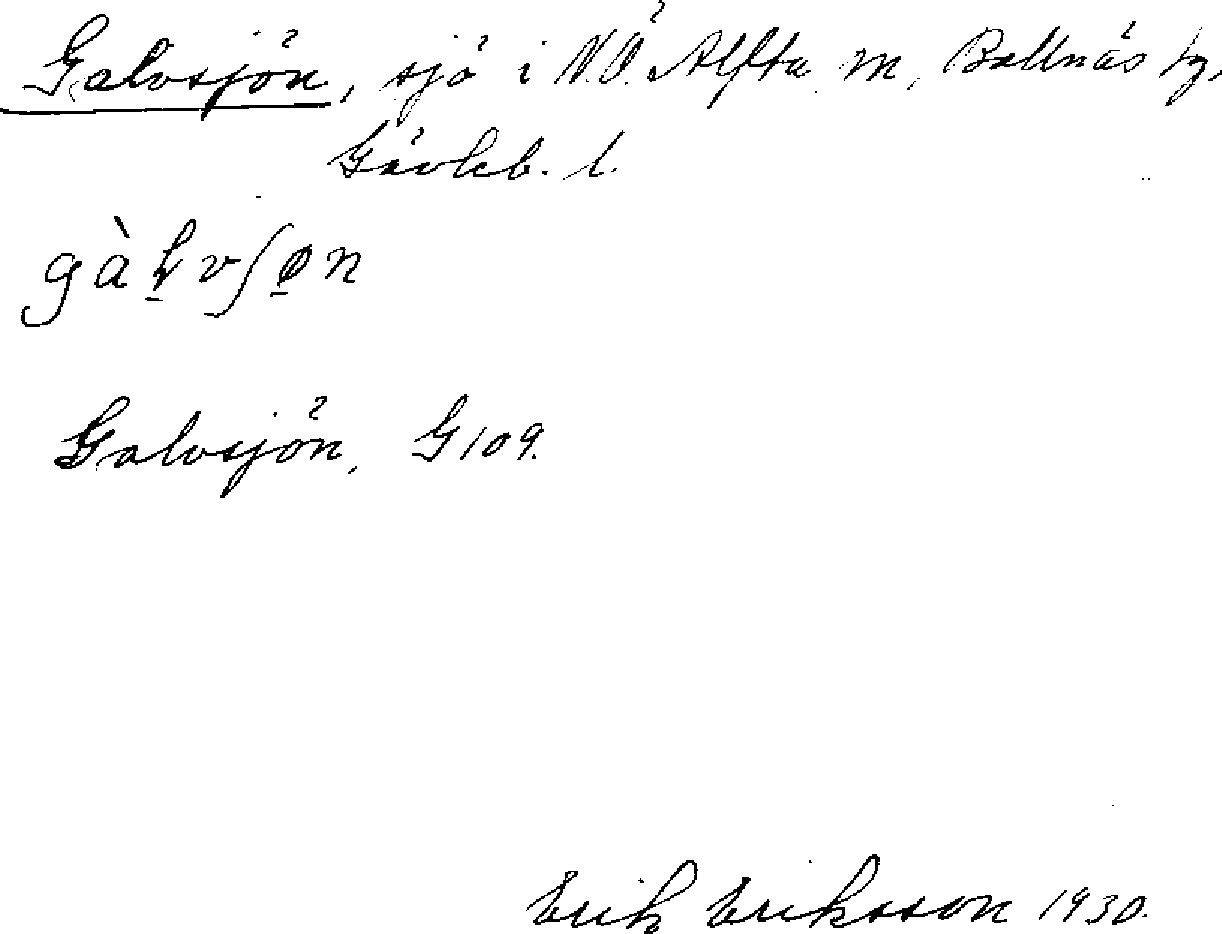 Galvsjön, sjö i N.Ö. Alfta m, Bollnäs tg,
Gävleb. l.
gàl̠vʃø̠n
Galvsjön, G109.
Erik Eriksson 1930.